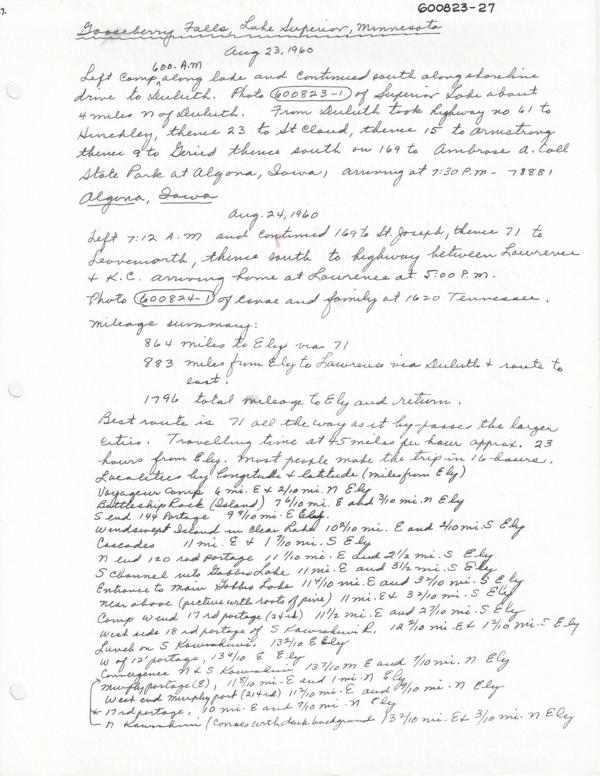 7.
600823-27
Gooseberry Falls, Lake Superior, Minnesota
Aug 23, 1960
600. A.M
Left Camp, along lake and continued south along shoreline
drive to Duluth. Photo 600823-1 of Superior Lake about
4 miles N of Duluth. From Duluth took highway no 61 to
Hinckley, thence 23 to St Cloud, thence 15 to Armstrong
thence 9 to thence south on 169 to Ambrose A. Call
State Park at Algona, Iowa, arriving at 7:30 P.M - 78881
Algona, Iowa
Aug. 24, 1960
Left 7:12 A.M and continued 169 to St. Joseph, thence 71 to
Leavenworth, thence south to highway between Lawrence
+ K.C. arriving home at Lawrence at 5:00 P.M.
Photo 600824-1 of canoe and family at 1620 Tennessee.
Mileage summary:
864 miles to Ely via 71
883 miles from Ely to Lawrence via Duluth + route to
east.
1796 total mileage to Ely and return.
Best route is 71 all the way as it by-passes the larger
cities. Travelling time at 45 miles per hour approx. 23
hours from Ely. Most people make the trip in 16 hours.
Localities by longitude & latitude (miles from Ely)
Voyageur Camp 6 mi. E & 2/10 mi. N Ely
Battleship Rock (Island) 7 6/10 mi. E and 3/10 mi. N Ely
S end 144 Portage 9 9/10 mi. E Ely.
Windswept Island in Clear Lake 10 2/10 mi. E and 2/10 mi. S Ely
Cascades 11 mi. E & 1 7/10 mi. S Ely
N end 120 rod portage 11 1/10 mi. E and 2 1/2 mi. S Ely
S Channel into Gabbro Lake 11 mi. E and 3 1/2 mi. S Ely
Entrance to Main Gabbro Lake 11 4/10 mi. E and 3 7/10 mi. S Ely
Near above (picture with roots of pine) 11 mi. E & 3 2/10 mi. S Ely
Camp W end 17 rd portage (24th) 11 1/2 mi. E and 2 7/10 mi. S Ely
West side 18 rd portage of S Kawishiwi R. 12 2/10 mi. E & 1 7/10 mi. S Ely
Lunch on S Kawishiwi. 13 2/10 E Ely
W of 12' portage, 13 4/10 E Ely
Convergence N & S Kawishiwi 13 7/10 m E and 7/10 mi. N Ely
Murphy portage (E), 11 8/10 mi. E and 1 mi. N Ely
West end Murphy port (214 rd) 11 2/10 mi. E and 9/10 mi. N Ely
17 rd portage, 10 mi. E and 9/10 mi. N Ely
N Kawishiwi (Canoes with dark background 13 2/10 mi. E & 3/10 mi. N Ely